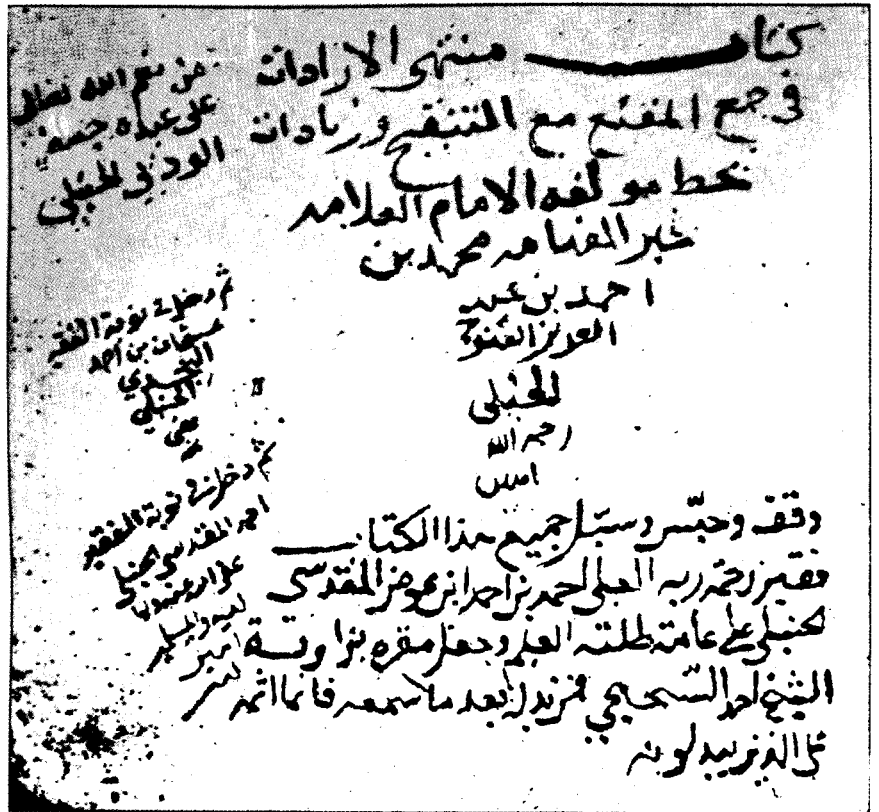 كتاب منتهى الارادات
في جمع المقنع مع التنقيح وزيادات
بخط مولفه الامام العلامه
محمد بن
احمد بن عبد
العزيز الفتوحي
الحنبلي
رحمه الله
امين
من نعم الله تعالى
على عبده
الحنبلي
ثم دخل في نوبة الفقير
عثمان بن احمد
النجدي
الحنبلي
عفي
عنه
ثم دخل في نوبة الفقير
احمد المقدسي الحنبلي
عفى الله عنه
ولوالديه وللمسلمين
امين
وقف وحبس وسبل جميع هذا الكتاب
فقير رحمة ربه العلي احمد بن احمد ابن عوض المقدسي
الحنبلي على عامة طلبة العلم وجعل مقره بزاوية
الشيخ احمد السحيمي فمن بدله بعد ما سمعه فانما اثمه
على الذين يبدلونه